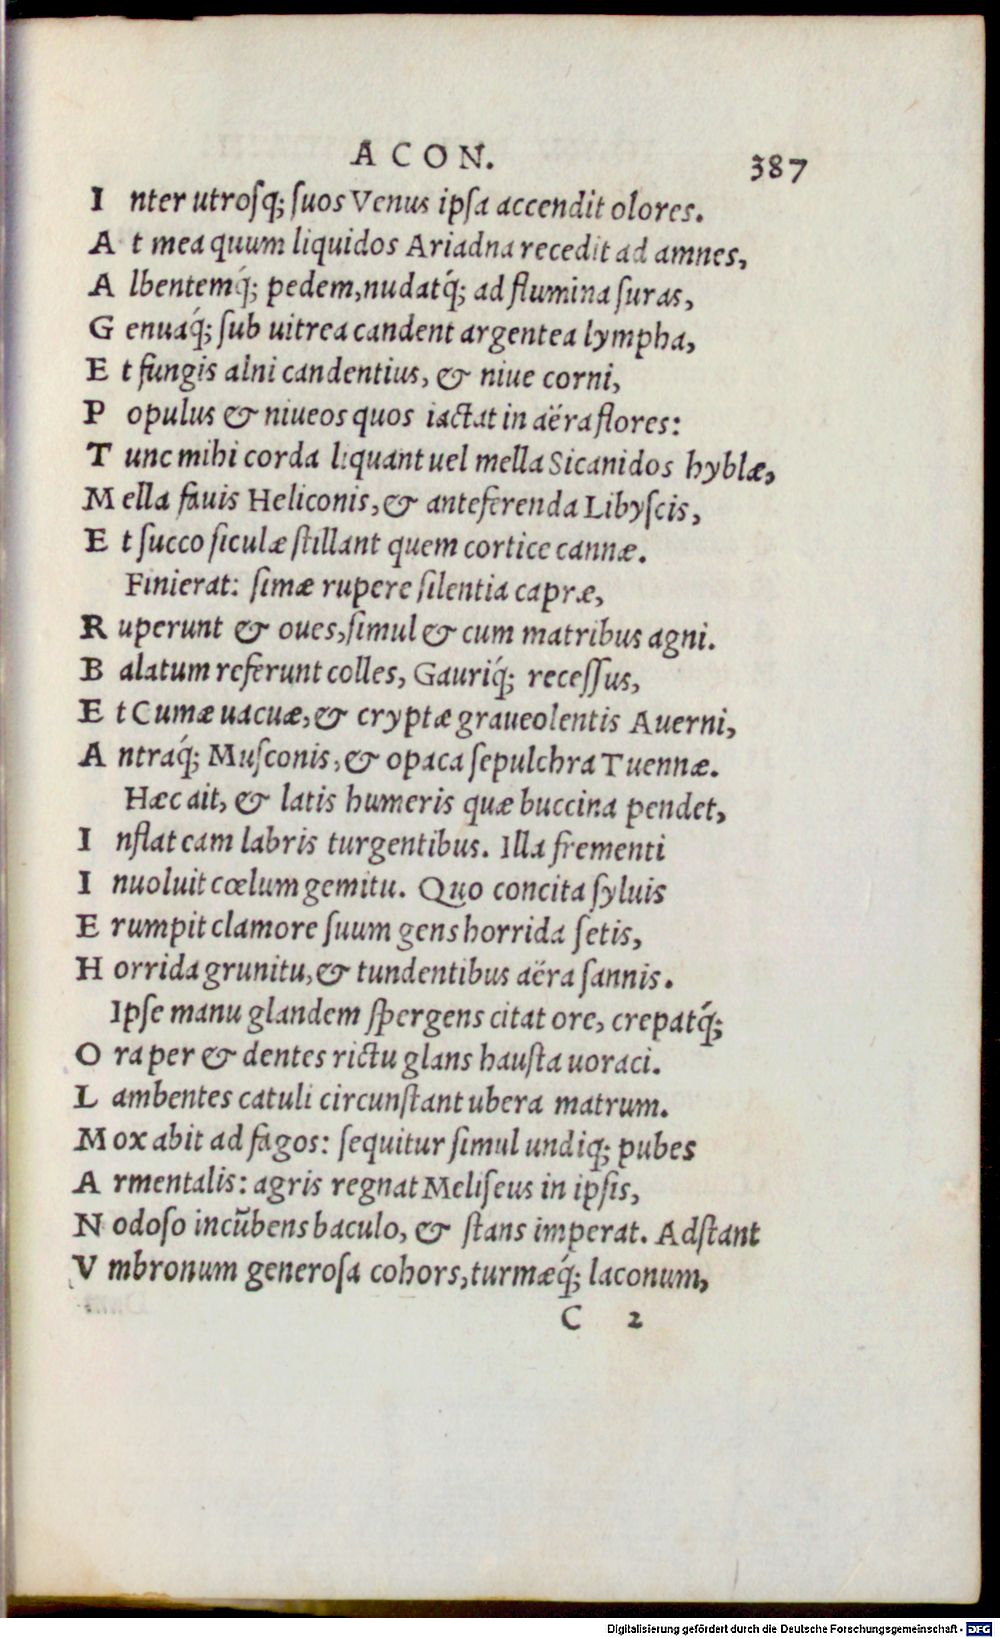 ACON. 387
Inter utrosq́; ſuos Venus ipſa accendit olores.
At mea quum liquidos Ariadna recedit ad amnes,
Albentemq́; pedem, nudatq́; ad flumina ſuras,
Genuaq́; ſub uitrea candent argentea lympha,
Et fungis alni candentius, & niue corni,
Populus & niueos quos iactat in aëra flores:
Tunc mihi corda liquant uel mella Sicanidos hyblæ,
Mella fauis Heliconis, & anteferenda Libyſcis,
Et ſucco ſiculæ ſtillant quem cortice cannæ.
Finierat: ſimæ rupere ſilentia capræ,
Ruperunt & oues, ſimul & cum matribus agni.
Balatum referunt colles, Gauriq́; receſſus,
Et Cumæ uacuæ, & cryptæ graueolentis Auerni,
Antraq́; Muſconis, & opaca ſepulchra Tuennæ.
Hæc ait, & latis humeris quæ buccina pendet,
Inflat eam labris turgentibus. Illa frementi
Inuoluit cœlum gemitu. Quo concita ſyluis
Erumpit clamore ſuum gens horrida ſetis,
Horrida grunitu, & tundentibus aëra ſannis.
Ipſe manu glandem ſpergens citat ore, crepatq́;
Ora per & dentes rictu glans hauſta uoraci.
Lambentes catuli circunſtant ubera matrum.
Mox abit ad fagos: ſequitur ſimul undiq; pubes
Armentalis: agris regnat Meliſeus in ipſis,
Nodoſo incūbens baculo, & ſtans imperat. Adſtant
Vmbronum generoſa cohors, turmæq́; laconum,
C 2
Digitalisierung gefördert durch die Deutsche Forschungsgemeinschaft - DFG